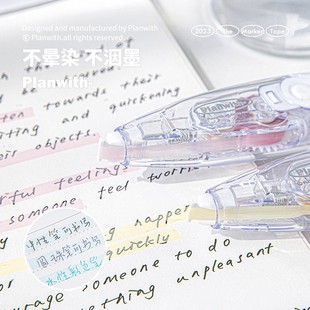 Designed and manufactured by Planwith
© Planwith.all rights reserved.
2023 The Marker Tape
不晕染 不洇墨
Planwith
towards their
and quickening
their objects.
Planwith
feelings
someone feel
happen
quickly
中性笔可书写
圆珠笔可书写
水性彩色笔
someone to do
something unpleasant